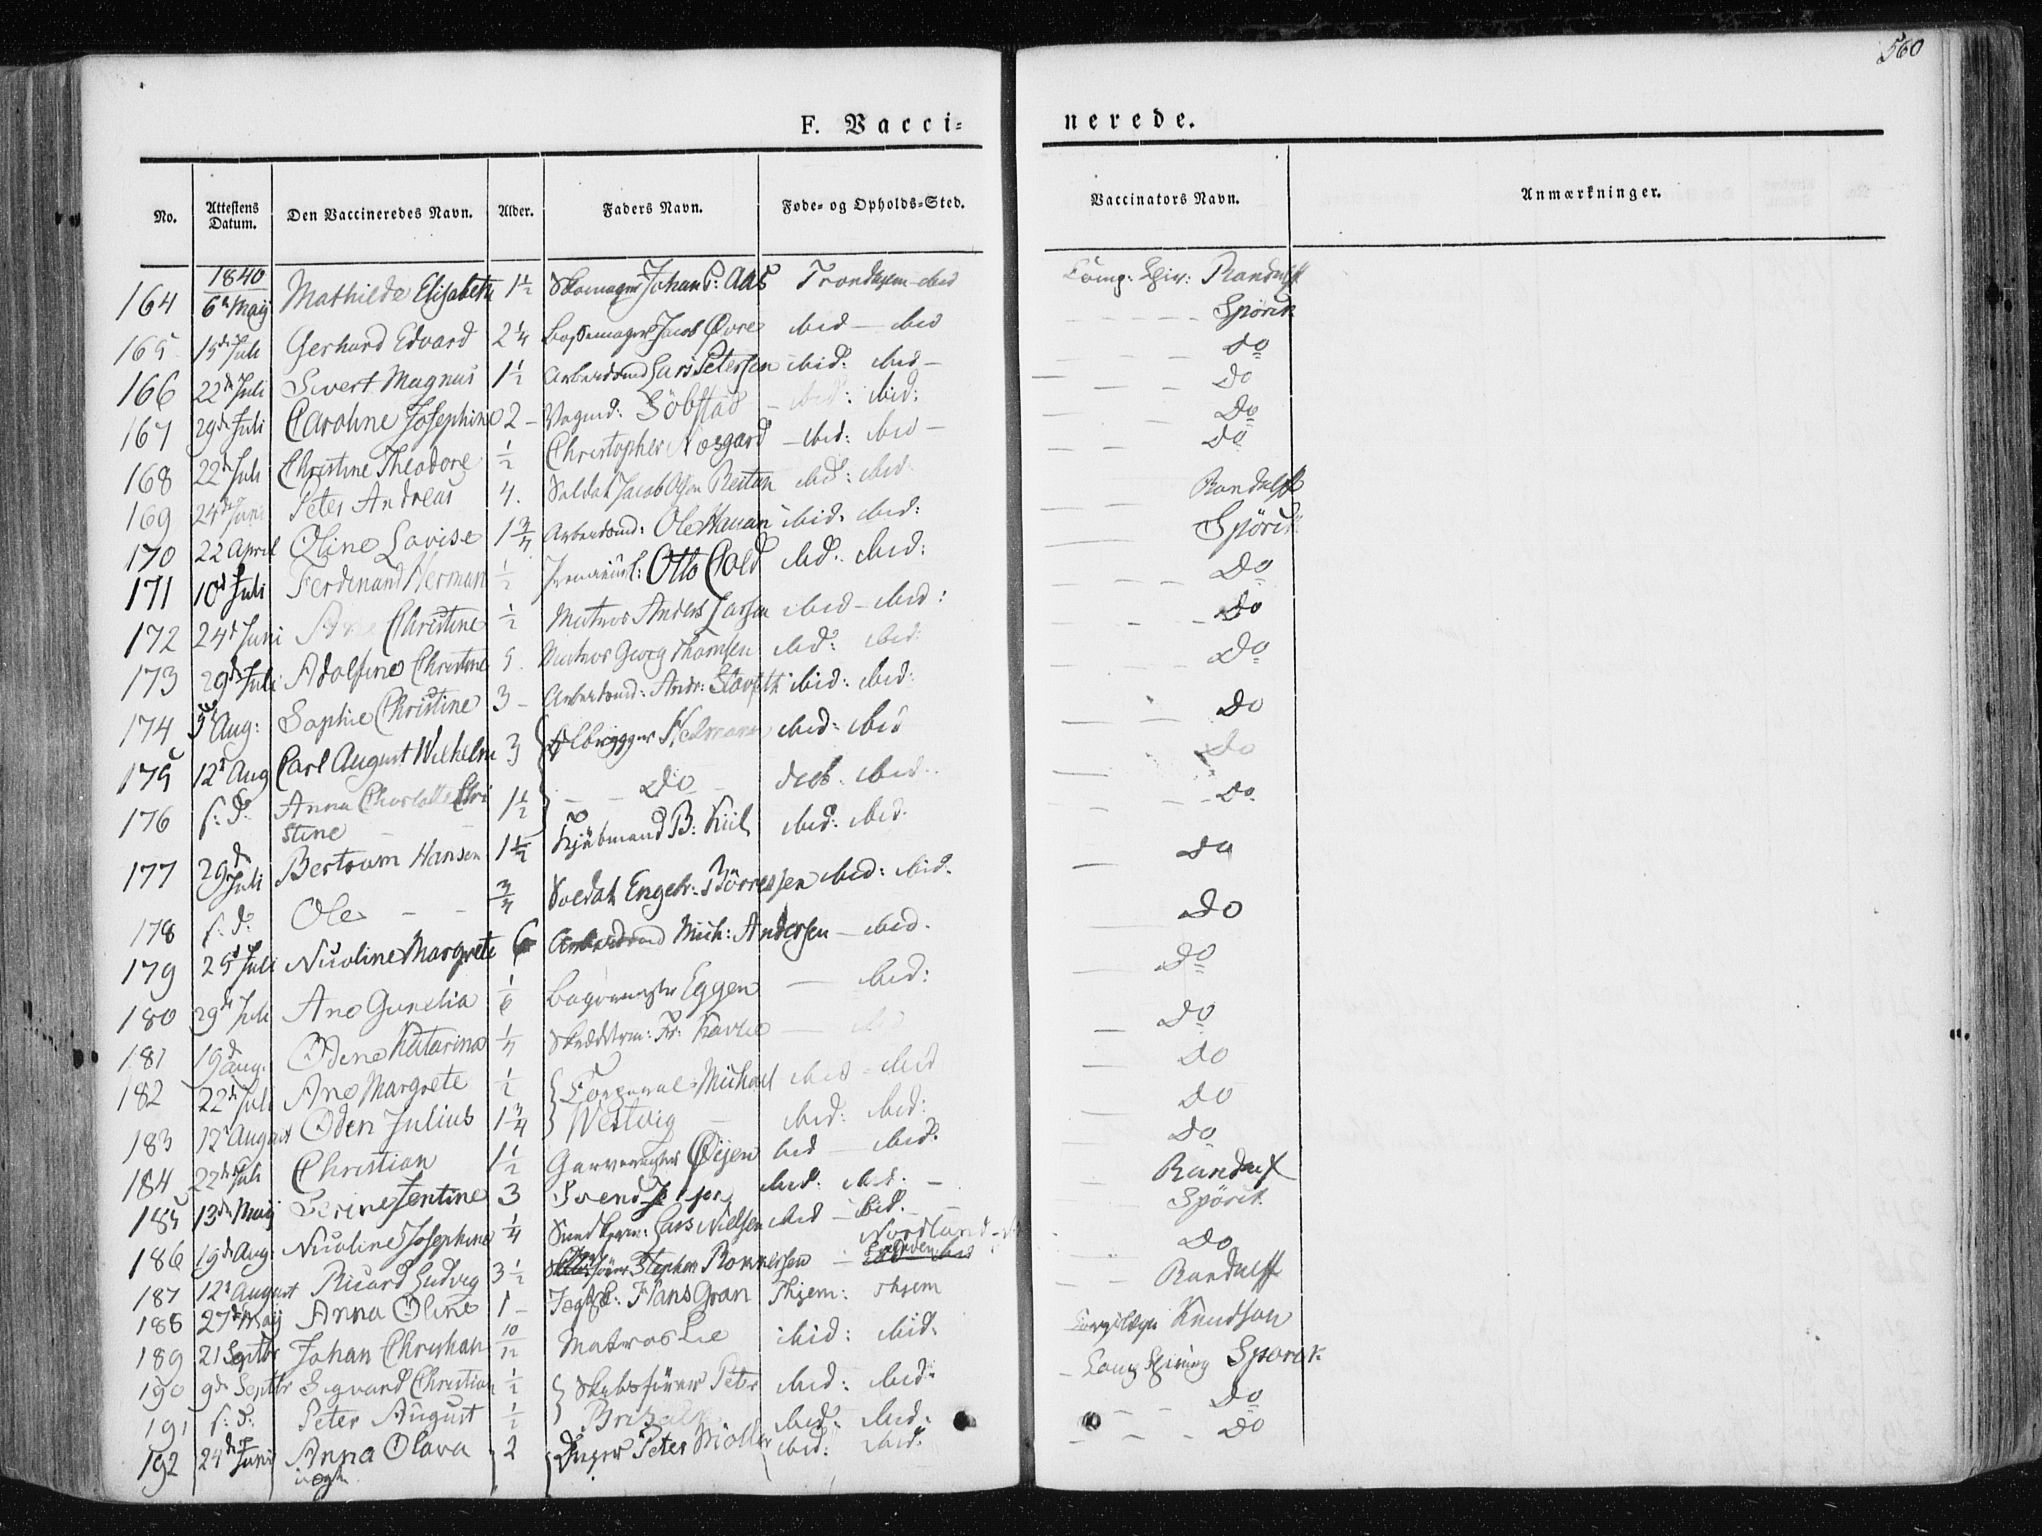 560
F. Vacci=nerede.
No. Attestens Datum. Den Vaccineredes Navn. Alder. Faders Navn. Føde= og Opholds=Sted. Vaccinators Navn. Anmærkninger.
1840
164 6te Maij Mathilde Elisabeth 1½ Skomager Johan P: Aas Trondhjem ibid Comp: Chir: Randulff
165 15de Juli Gerhard Edvard 2¼ Bøssemager Jacob Øvre ibid — ibid Spörck
166 22de Juli Sivert Magnus 1½ Arbeidsmd Lars Petersen ibid: ibid — do
167 29de Juli Caroline Josephine 2 — Vognmd: Söbstad — ibid: ibid: Do
168 22de Juli Christine Theodore ½ Christopher Nosgard — ibid: ibid — Do
169 24de Juni Peter Andreas 4. Soldat Jacob Olsen Reitan ibid: ibid. Do
170 22 April Oline Lovise 1¾ Arbeidsmd: Ole Hauan ibid: ibid: Randulff
171 10de Juli Ferdinand Herman ½ Premierl: Otto Cold ibid: ibid: Spörck
172 24de Juni Ane Christine ½ Matros Anders Larsen ibid — ibid: Do
173 29de Juli Adolfine Christine 5. Matros Georg Thomsen ibid: ibid: Do
174 5te Aug: Sophie Christine 3 — Arbeidsmd: Andr: ibid: ibid: Do
175 12te Aug Carl August Wilhelm 3 Ølbrygger ibid: ibid Do
176 s: d: Anna Charlotte Chri 1½ — Do — ibid. ibid. Do
stine
177 29de Juli Bertrum Hansen 1½ Kjübmand B: Kiil ibid: ibid: Do
178 s: d: Ole — — ¾ Soldat Engelr: Börresen ibid: ibid. Do
179 25de Juli Nicoline Margrete 6 Arbeidsmd Mich: Andersen — ibid. Do
180 29de Juli Ane Gunelia 1/6 Bagersvend Eggen — ibid: Do
181 19de Aug: Odine Katarina ¼ Skrædderm: Fr: — Do
182 22de Juli Ane Margrete ½ Corporal Michael ibid — ibid Do
183 12te August Oden Julius 1¾ Westvig — ibid: ibid: Do
184 22de Juli Christian 1½ Garversvend Øijen ibid — ibid: Do
185 13de Maij Jentine 3 Svend ibid: ibid. — Randulff
186 19de Aug: Nicoline Josephine ¼ Lars Nielsen ibid — ibid. — Spörck
187 12te August Ricard Ludvig 3½ Stephen — Nordland Do
188 27de Maij Anna Oline 1 — Hans Gran Thjem: Thjem Randulff
189 21 Septbr Johan Christian 10/12 Matros Lie ibid: ibid. Knudson
190 9de Septbr Sigvard Christian ½ Peter ibid: ibid: Spörck
191 s: d: Peter August ½ ibid: ibid: Do
192 24de Juni Anna Olava 2 Peter Möller ibid: ibid: Do